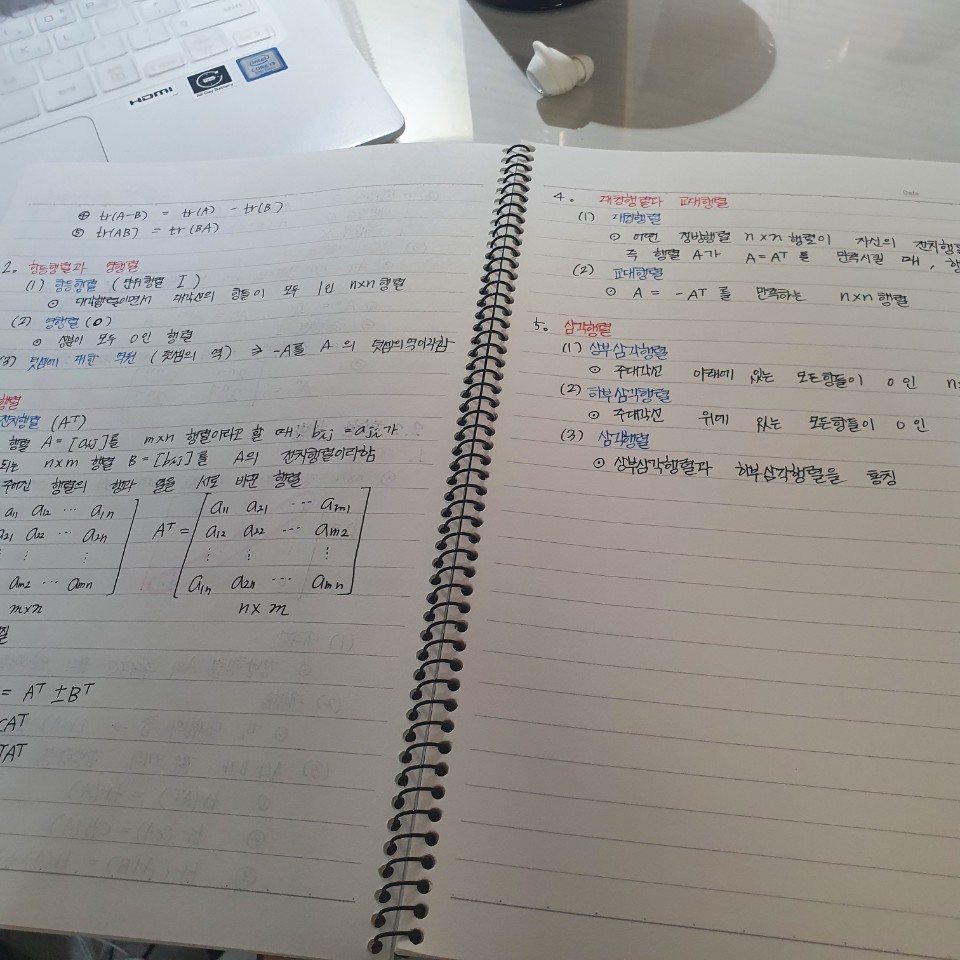 HDMI
All Day Battery
intel
CORE i5
④ tr(A-B) = tr(A) - tr(B)
⑤ tr(AB) = tr(BA)
2. 항등행렬과 영행렬
(1) 항등행렬 (단위행렬 I)
⊙ 대각행렬이면서 대각선의 항들이 모두 1인 n×n 행렬
(2) 영행렬 (O)
⊙ 성분이 모두 0인 행렬
(3) 덧셈에 대한 역원 (덧셈의 역) ⇒ -A를 A의 덧셈의 역이라함
행렬
전치행렬 (Aᵀ)
행렬 A = [aij]를 m×n 행렬이라고 할 때, bij = aji가
되는 n×m 행렬 B = [bij]를 A의 전치행렬이라함
주어진 행렬의 행과 열을 서로 바꾼 행렬
a11 a12 ⋯ a1n
a21 a22 ⋯ a2n
⋮ ⋮
am2 ⋯ amn
m×n
Aᵀ =
a11 a21 ⋯ am1
a12 a22 ⋯ am2
⋮ ⋮ ⋮
a1n a2n ⋯ amn
n×m
= Aᵀ ± Bᵀ
cAᵀ
ᵀAᵀ
Date
4. 대칭행렬과 교대행렬
(1) 대칭행렬
⊙ 어떤 정방행렬 n×n 행렬이 자신의 전치행
즉 행렬 A가 A = Aᵀ를 만족시킬 때, 행
(2) 교대행렬
⊙ A = -Aᵀ를 만족하는 n×n 행렬
5. 삼각행렬
(1) 상부삼각행렬
⊙ 주대각선 아래에 있는 모든항들이 0인 n
(2) 하부삼각행렬
⊙ 주대각선 위에 있는 모든항들이 0인
(3) 삼각행렬
⊙ 상부삼각행렬과 하부삼각행렬을 통칭